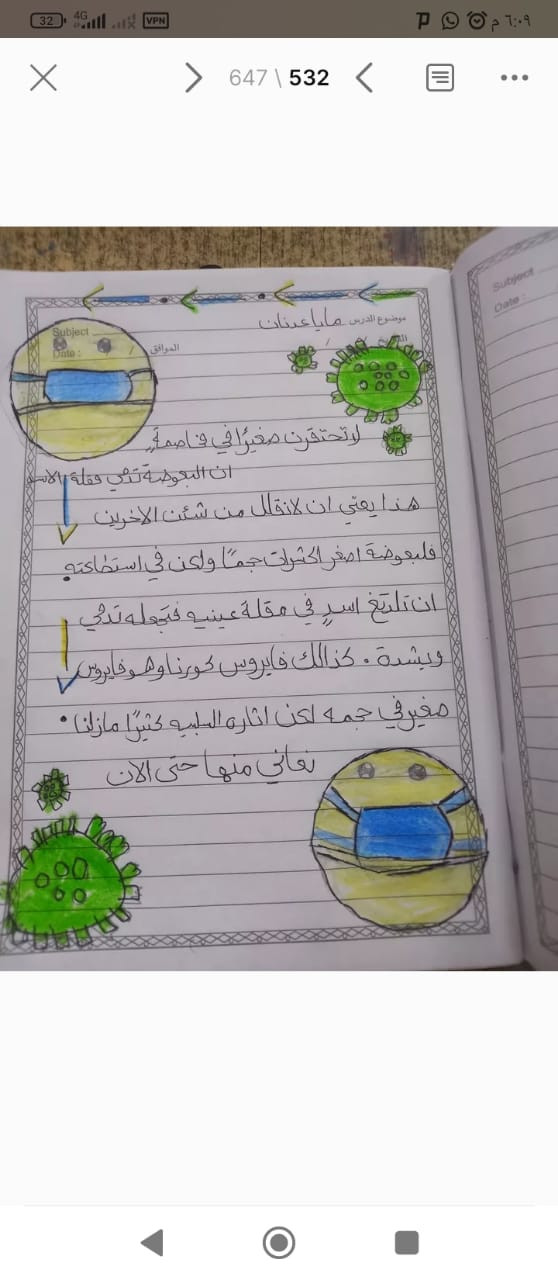 32 4G VPN ٦:٠٩ م
647 \ 532
موضوع الدرس مايا عدنان
Subject
Date : / الموافق
Subject
Date :
لا تحتقرن صغيرًا في مخاصمةٍ
ان البعوضة تدمي مقلة الاسد
هذا يعني ان لا نقلل من شئن الاخرين
فلبعوضة اصغر الحشرات حجمًا ولكن في استطاعته
ان تلدغ اسدٍ في مقلة عينيه فتجعله تدمي
وبشدة. كذالك فايروس كورنا وهو فايروس
صغير في حجمه لكن اثاره السلبيه كثيرًا مازلنا
نعاني منها حتى الان